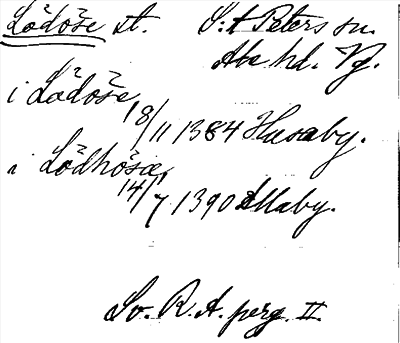 Lödöse st. S:t Peters sn.
Ale hd. Vg.
i Lödöse,
18/11 1384 Husaby.
i Lödhösæ,
14/7 1390
Sv. R. A. perg. II.